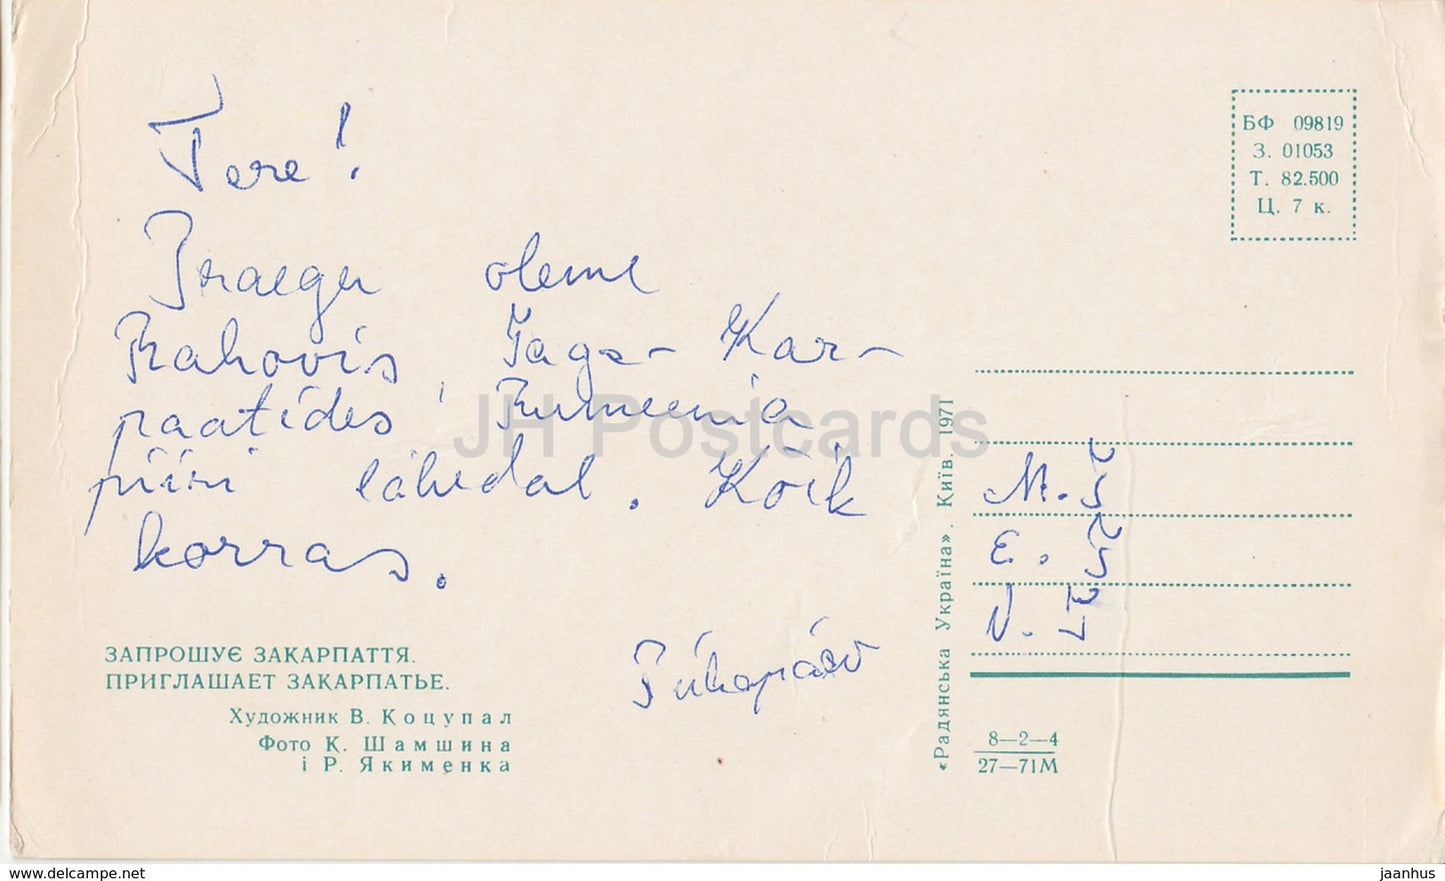 Tere!
Praegu oleme
Rahovis, Taga-Kar-
paatides, Rumeenia
piiri lähedal. Kõik
korras.
Pühapäev
ЗАПРОШУЄ ЗАКАРПАТТЯ.
ПРИГЛАШАЕТ ЗАКАРПАТЬЕ.
Художник В. Коцупал
Фото К. Шамшина
і Р. Якименка
«Радянська Україна». Київ. 1971
БФ 09819
З. 01053
Т. 82.500
Ц. 7 к.
M.
E.
V.
8—2—4
27—71М
JH Postcards
www.delcampe.net
jaanhus